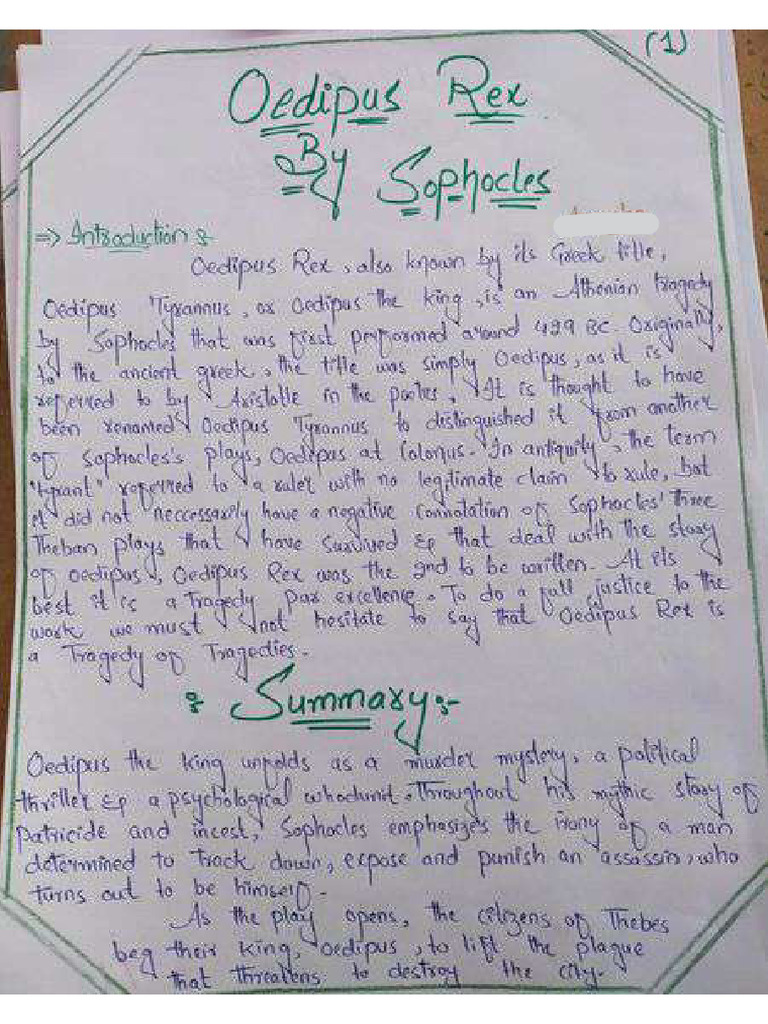 (1)
Oedipus Rex
By Sophocles
=> Introduction :-
Oedipus Rex, also known by its Greek title,
Oedipus Tyrannus, or Oedipus the king, is an Athenian tragedy
by Sophocles that was first performed around 429 BC. Originally,
to the ancient greek, the title was simply Oedipus, as it is
referred to by Aristotle in the poetics. It is thought to have
been renamed Oedipus Tyrannus to distinguished it from another
of Sophocles's plays, Oedipus at Colonus. In antiquity, the term
"tyrant" referred to a ruler with no legitimate claim to rule, but
it did not neccessarily have a negative connotation of Sophocles' three
Theban plays that have survived & that deal with the story
of oedipus, Oedipus Rex was the 2nd to be written. At its
best it is a Tragedy par excellence. To do a full justice to the
work we must not hesitate to say that Oedipus Rex is
a Tragedy of Tragedies.
: Summary :-
Oedipus the king unfolds as a murder mystery, a political
thriller & a psychological whodunit. Throughout his mythic story of
patricide and incest, Sophocles emphasizes the irony of a man
determined to track down, expose and punish an assassin, who
turns out to be himself.
As the play opens, the citizens of Thebes
beg their king, oedipus, to lift the plague
that threatens to destroy the city.